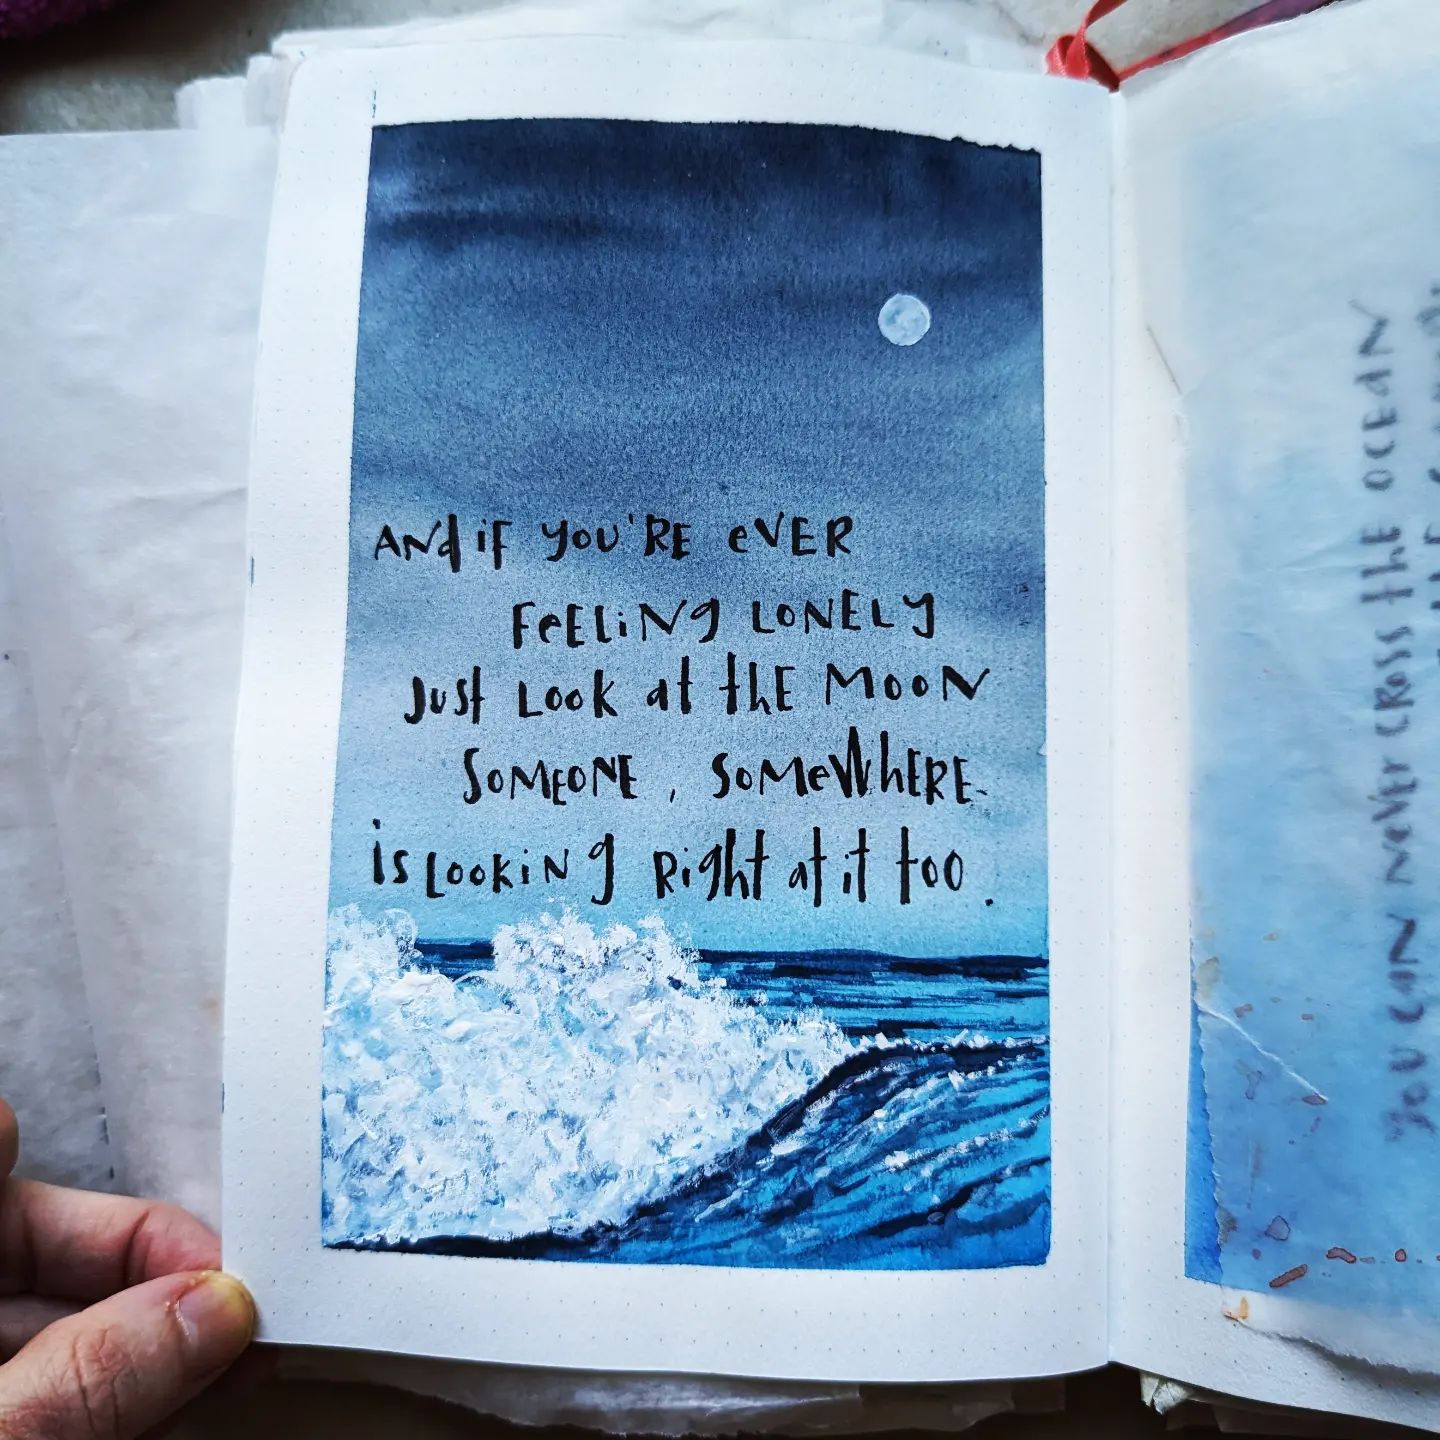 And if you're ever
feeling lonely
just look at the moon
someone, somewhere
is looking right at it too.
you can never cross the ocean